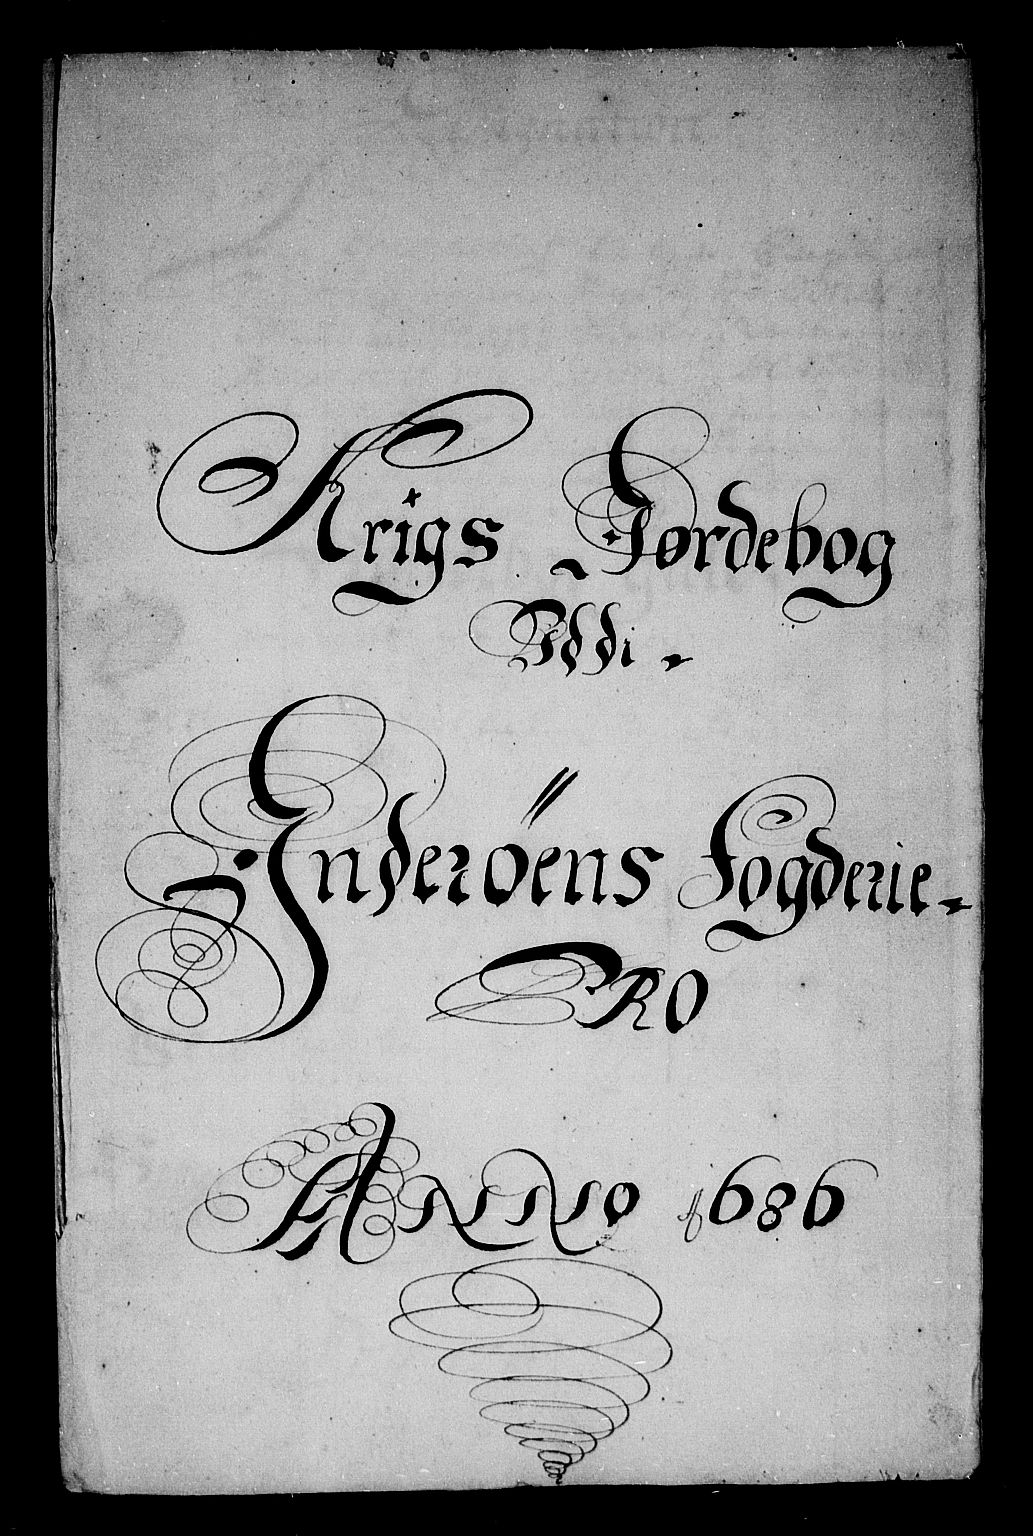 Krigs Jordebog
Udi
Inderöens Fogderie
PRO
ANNO 1686